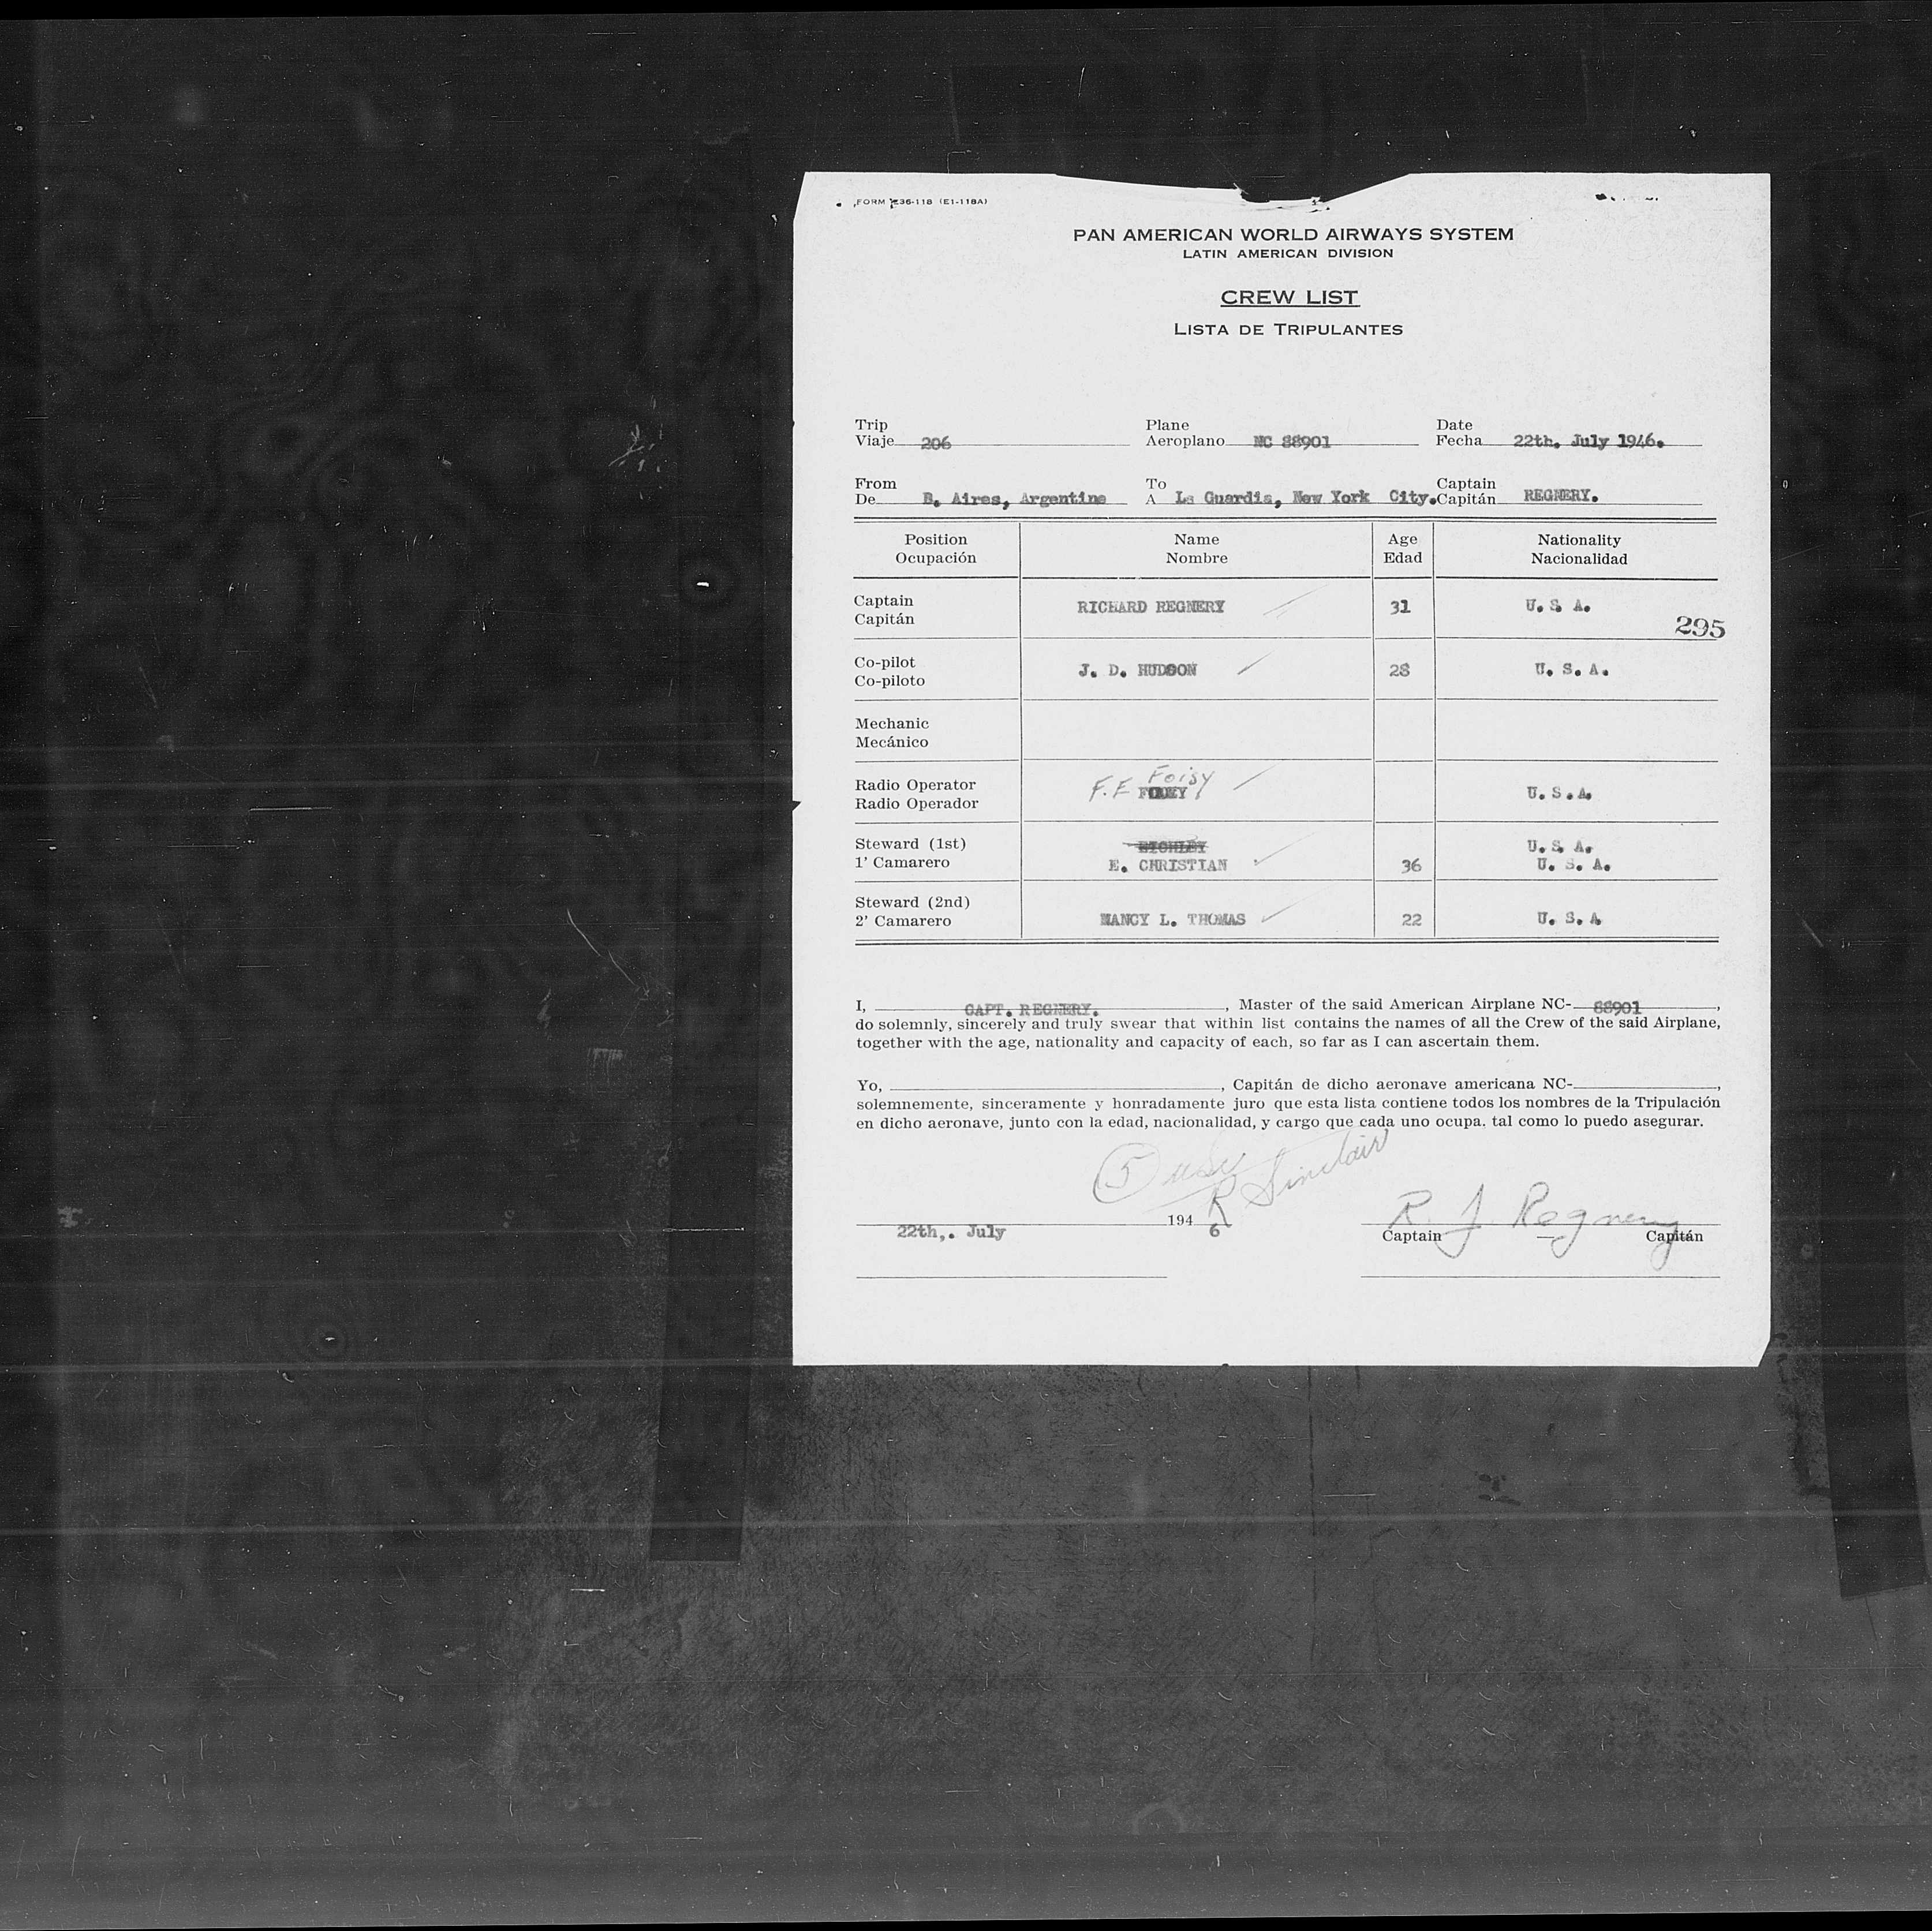 FORM E36-118 (E1-118A)
PAN AMERICAN WORLD AIRWAYS SYSTEM
LATIN AMERICAN DIVISION
CREW LIST
LISTA DE TRIPULANTES
Trip Plane Date
Viaje 206 Aeroplano NC 88901 Fecha 22th. July 1946.
From To Captain
De B. Aires, Argentina A La Guardia, New York City. Capitán REGNERY.
Position Name Age Nationality
Ocupación Nombre Edad Nacionalidad
Captain RICHARD REGNERY 31 U. S. A.
Capitán
295
Co-pilot J. D. HUDSON 28 U. S. A.
Co-piloto
Mechanic
Mecánico
Foisy
Radio Operator F. E U. S. A.
Radio Operador
Steward (1st) U. S. A.
1' Camarero E. CHRISTIAN 36 U. S. A.
Steward (2nd)
2' Camarero NANCY L. THOMAS 22 U. S. A
I, CAPT. REGNERY. , Master of the said American Airplane NC- 88901 ,
do solemnly, sincerely and truly swear that within list contains the names of all the Crew of the said Airplane,
together with the age, nationality and capacity of each, so far as I can ascertain them.
Yo, , Capitán de dicho aeronave americana NC- ,
solemnemente, sinceramente y honradamente juro que esta lista contiene todos los nombres de la Tripulación
en dicho aeronave, junto con la edad, nacionalidad, y cargo que cada uno ocupa, tal como lo puedo asegurar.
5 usc
R Sinclair
194 R. J. Regnery
22th,. July 6 Captain Capitán